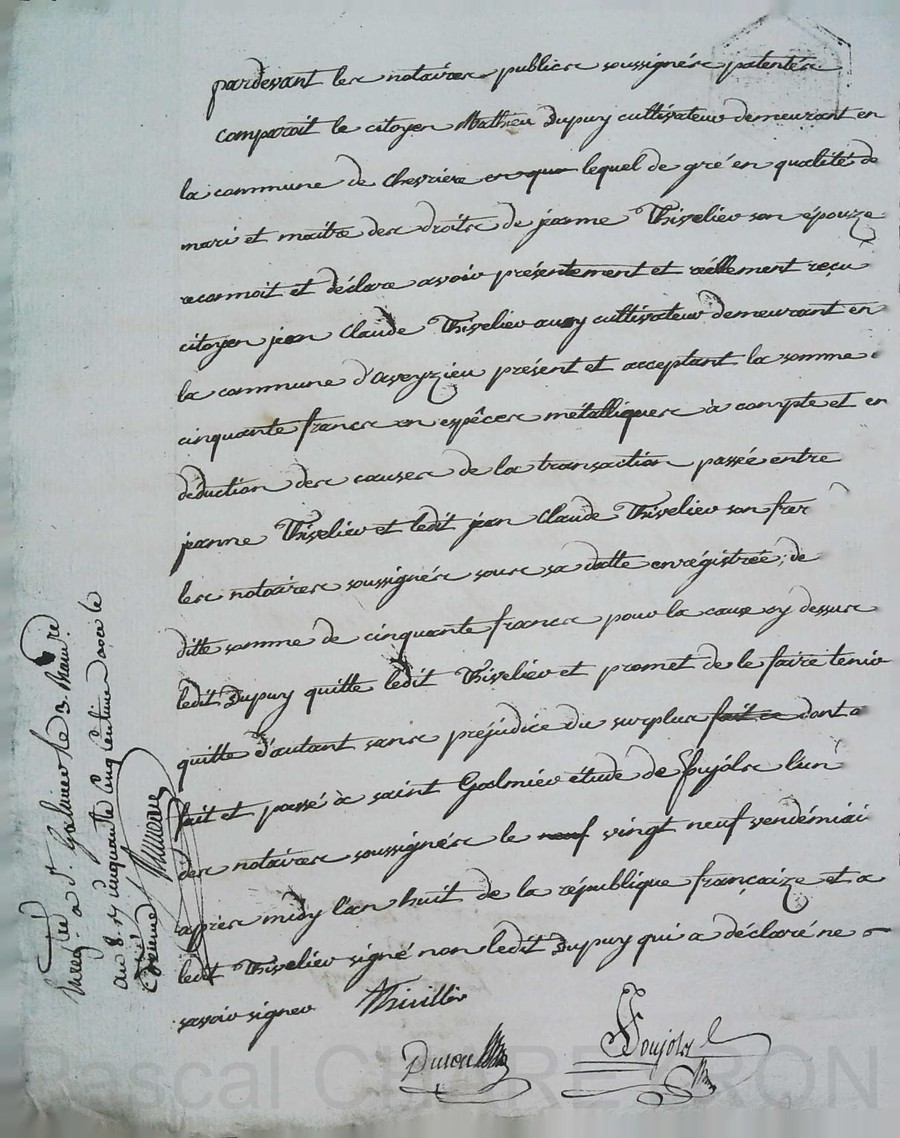 pardevant les notaires publics soussignés patentés
comparoit le citoyen Mathieu Dupuy cultivateur demeurant en
la commune de Chevriere en que lequel de gré en qualité de
mari et maitre des droits de jeanne Thivelier son épouze
reconnoit et déclare avoir présentement et réellement reçu
citoyen jean Claude Thivelier aussy cultivateur demeurant en
la commune d'aveyzieu présent et acceptant la somme
cinquante francs en espêces métalliques à compte et en
déduction des causes de la transaction passée entre
jeanne Thivelier et ledit jean Claude Thivelier son frer
les notaires soussignés sous sa datte enrégistrée; de
ditte somme de cinquante francs pour la cause cy dessus
ledit Dupuy quitte ledit Thivelier et promet de le faire tenir
quitte d'autant sans préjudice du surplus fait ce dont a
fait et passé à saint Galmier étude de Poujols l'un
des notaires soussignés le neuf vingt neuf vendémiai
après midy l'an huit de la république françaize et a
ledit Thivelier signé non ledit Dupuy qui a déclaré ne
savoir signer Thivillier
Poujols
Enregistré a St Galmier le 3 Brumre
an 8. cinquante cinq centimes avec le
Pascal CHAREYRON